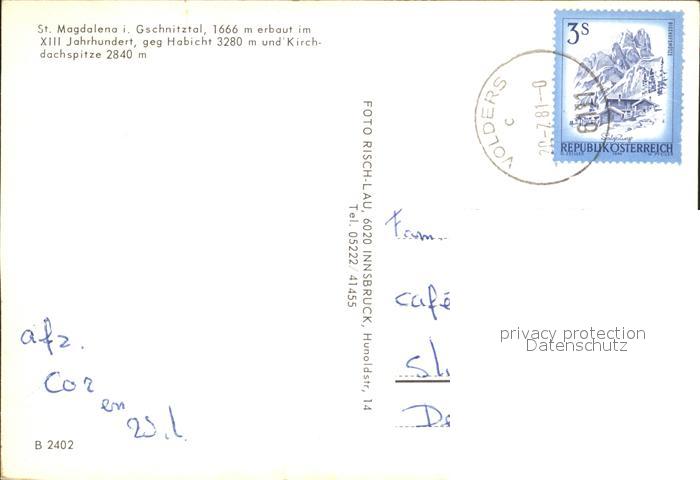 St. Magdalena i. Gschnitztal, 1666 m erbaut im
XIII Jahrhundert, geg Habicht 3280 m und Kirch-
dachspitze 2840 m
3S
REPUBLIK ÖSTERREICH
VOLDERS
c
6111
FOTO RISCH-LAU, 6020 INNSBRUCK, Hunoldstr, 14
Tel. 05222/41455
Fam.
café
privacy protection
Datenschutz
afz.
Cor
en
B 2402